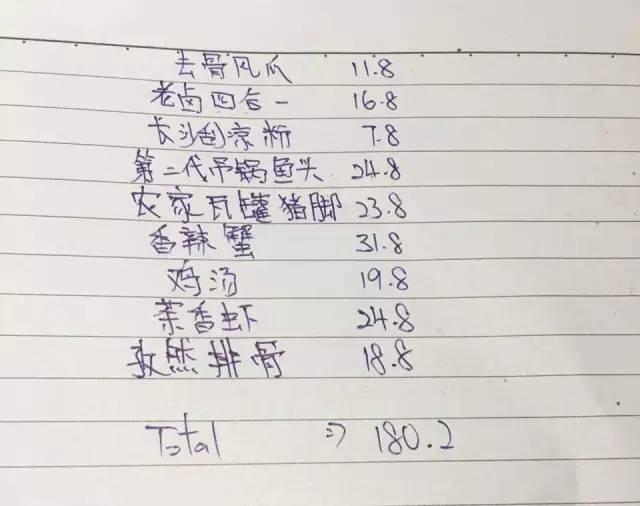 去骨凤爪 11.8
老卤四合一 16.8
长沙刮凉粉 7.8
第二代吊锅鱼头 24.8
农家瓦罐猪脚 23.8
香辣蟹 31.8
鸡汤 19.8
茶香虾 24.8
孜然排骨 18.8
Total => 180.2